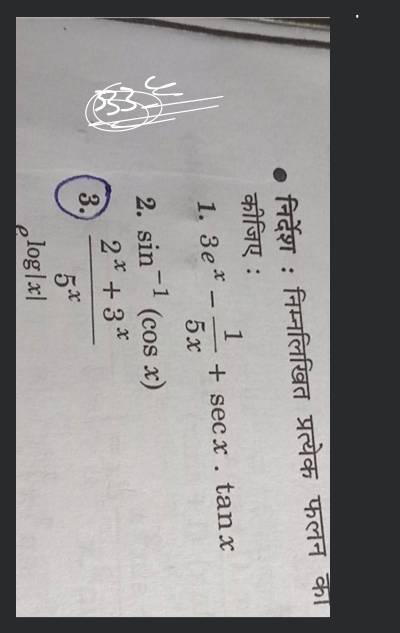 ● निर्देश : निम्नलिखित प्रत्येक फलन का
कीजिए :
1. 3e^x − 1/5x + sec x . tan x
2. sin⁻¹ (cos x)
3. (2^x + 3^x)/5^x
e^log|x|